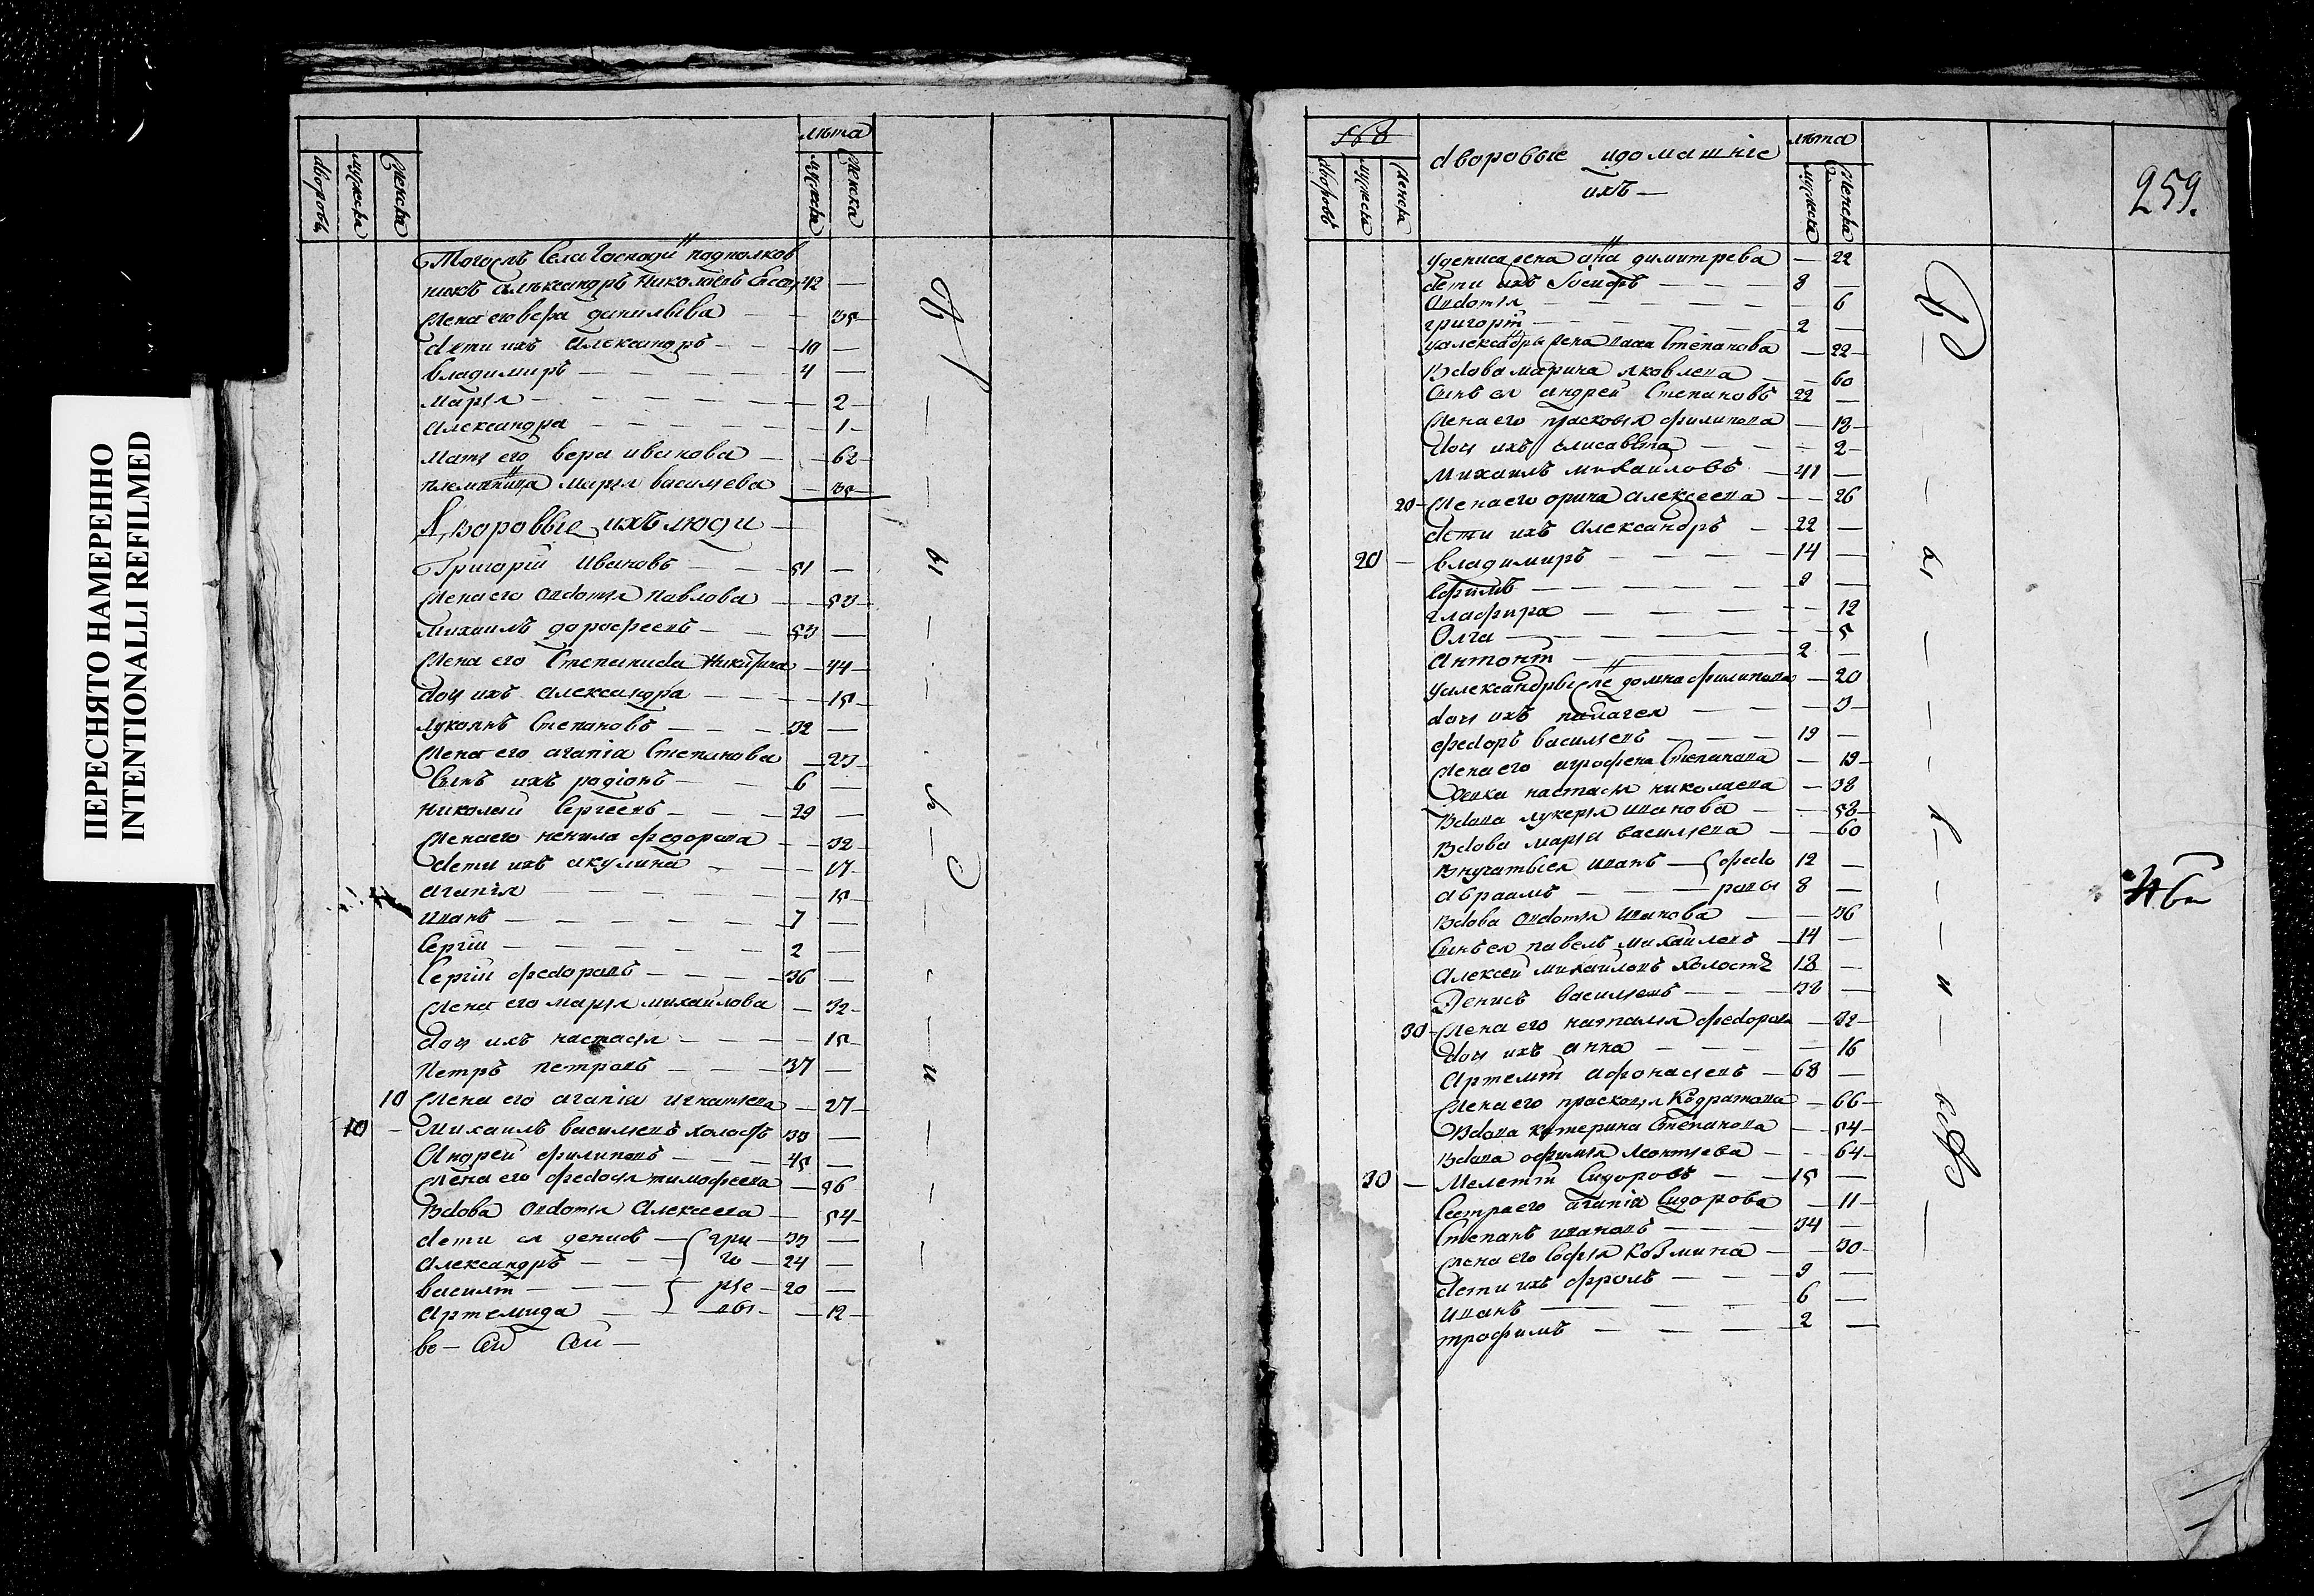 ПЕРЕСНЯТО НАМЕРЕННО
INTENTIONALLI REFILMED
лѣта
дворовъ
мужеска
женска
мужеска
женска
Тогожъ села Господи подполков
никъ Александръ Николаевъ 42
жена его вера данильева 35
дети ихъ Александръ 10
владимиръ 4
Марья 2
Александра 1
Мать его вера иванова 62
племяница Марья васильева 35
Дворовые ихъ люди
Григорій Ивановъ 51
жена его Авдотья Павлова 53
Михаилъ дорофеевъ 53
жена его Степанида Никитина 44
дочь ихъ Александра 15
Лукоянъ Степановъ 32
жена его агапіа Степанова 23
Сынъ ихъ родіонъ 6
Николай Сергеевъ 29
жена его ненила федорова 32
дети ихъ акулина 17
агапія 15
иванъ 7
Сергій 2
Сергій федоровъ 36
жена его марья михаилова 32
дочь ихъ настасья 15
Петръ петровъ 37
10 жена его агапіа игнатьева 27
10 Михаилъ васильевъ холостъ 33
Андрей филиповъ 45
жена его федосья тимофеева 36
Вдова Авдотья Алексеева 54
дети ея денисъ гри 33
Александръ го 24
василій рье 20
Артемида вы 12
во
568
дворовые идомашніе
ихъ
лѣта
дворовъ
мужеска
женска
мужеска
женска
259.
удениса жена анна димитрева 22
дети ихъ 8
Авдотья 6
григорій 2
уалександры жена анна Степанова 22
Вдова марина яковлева 60
Сынъ ея андрей Степановъ 22
жена его прасковья филипова 18
дочь ихъ елисавета 2
Михаилъ михаиловъ 41
20 жена его орина алексеева 26
дети ихъ Александръ 22
20 владимиръ 14
ефимъ 9
глафира 12
Олга 5
Антоній 2
уалександры же домна филипова 20
дочь ихъ пелагея 3
федоръ васильевъ 19
жена его аграфена Степанова 19
девка настасья николаева 38
Вдова лукерья иванова 58
Вдова марья васильева 60
Внучатыея иванъ федо 12
Авраамъ ровы 8
Вдова Авдотья иванова 36
Сынъ ея павелъ михаилевъ 14
Алексей михаиловъ холостъ 18
Денисъ васильевъ 38
30 жена его наталья федорова 32
дочь ихъ анна 16
Артемій афонасьевъ 68
жена его прасковья Кодратова 66
Вдова катерина Степанова 54
Вдова офимья Леонтьева 64
30 Мелетій Сидоровъ 15
Сестра его агапіа Сидорова 11
Степанъ ивановъ 34
жена его Софья Козмина 30
дети ихъ фролъ 9
иванъ 6
трофимъ 2